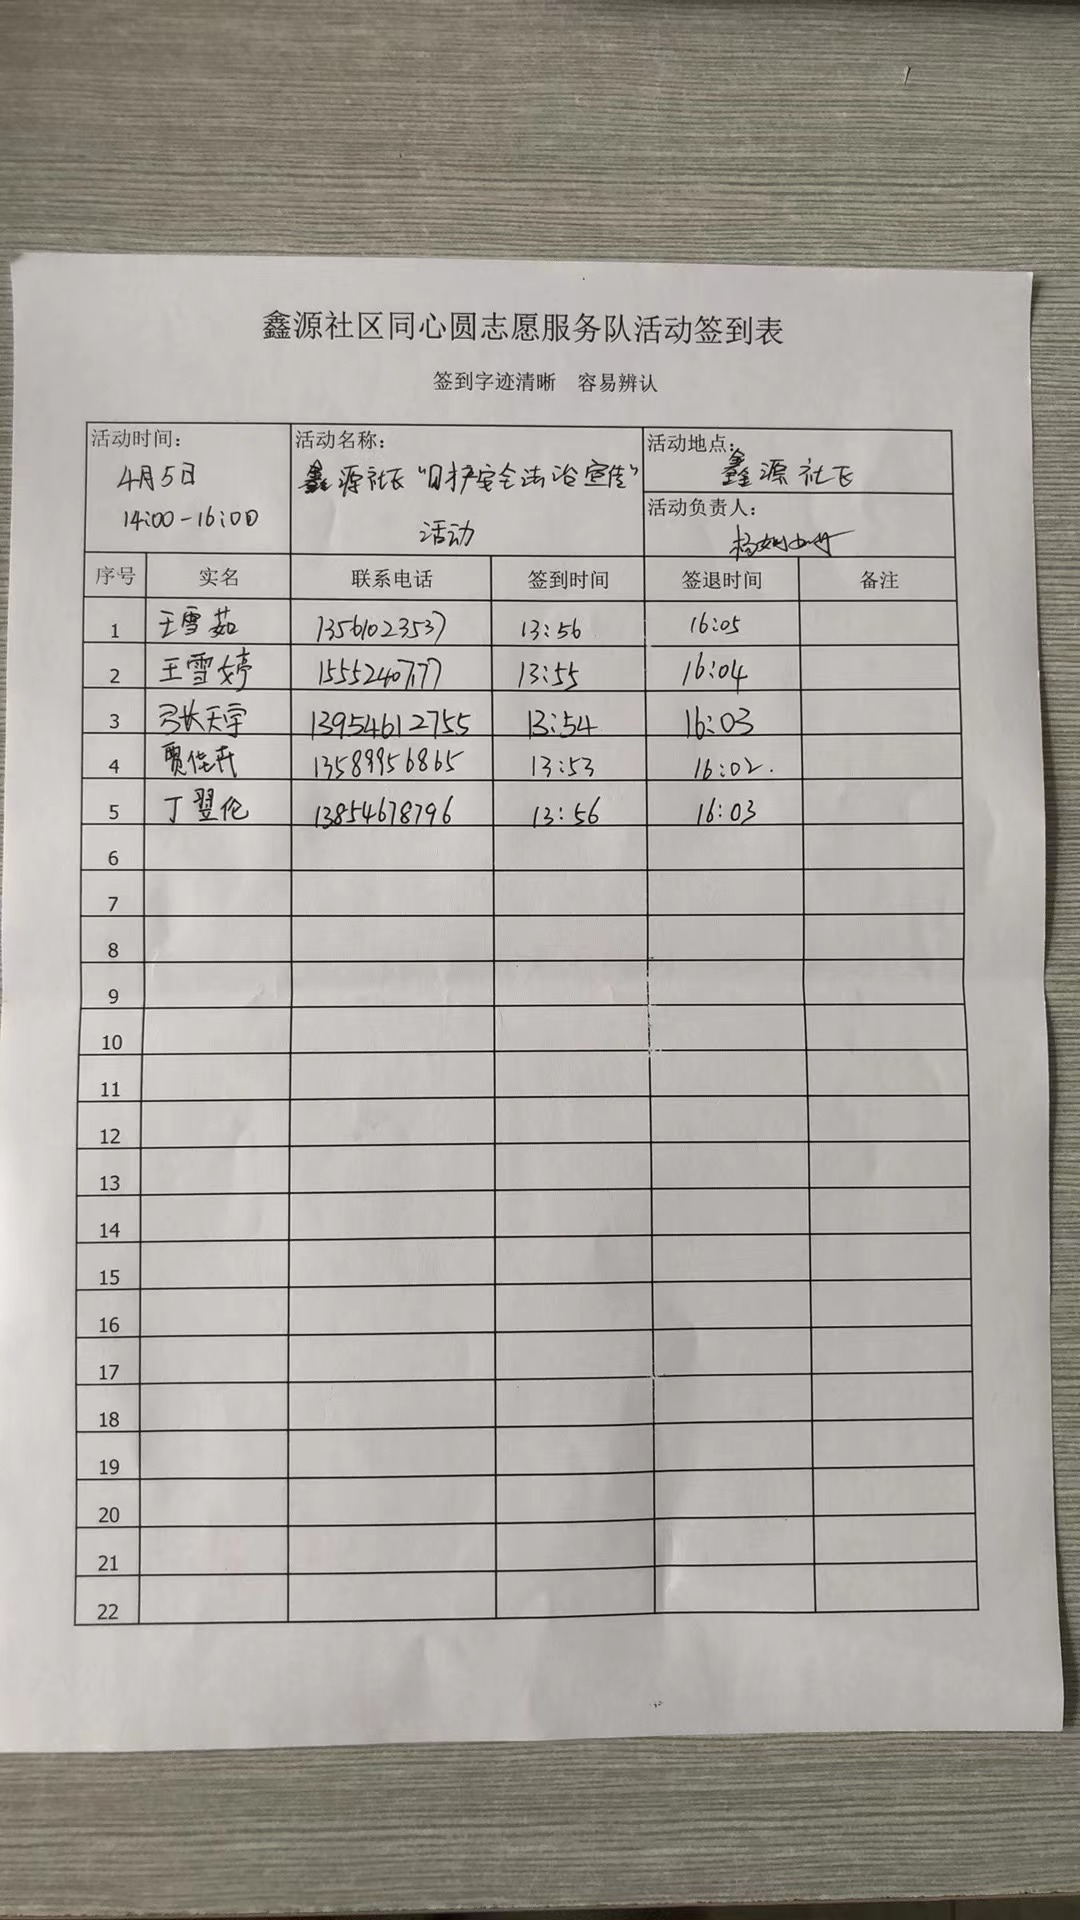 鑫源社区同心圆志愿服务队活动签到表
签到字迹清晰 容易辨认
活动时间: 活动名称: 活动地点:
4月5日 鑫源社区“安全法治宣传” 鑫源社区
14:00-16:00 活动 活动负责人:
序号 实名 联系电话 签到时间 签退时间 备注
1 王雪茹 13561023537 13:56 16:05
2 王雪婷 15552407177 13:55 16:04
3 张天宇 13954612755 13:54 16:03
4 贾佳卉 13589956865 13:53 16:02.
5 丁翌伦 13854678796 13:56 16:03
6
7
8
9
10
11
12
13
14
15
16
17
18
19
20
21
22